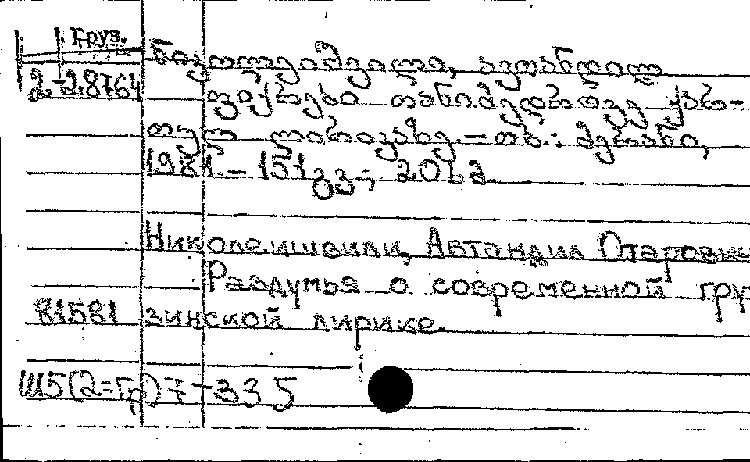 Груз.
ნიკოლეიშვილი, ავთანდილ
2-28764
ფიქრები თანამედროვე ქარ-
თულ ლირიკაზე. – თბ.: მერანი,
1981 – 151 გვ.; 20 სმ
Николеишвили, Автандил Отарович
Раздумья о современной гру
81581 зинской лирике.
Ш5(2=Гр)7-335